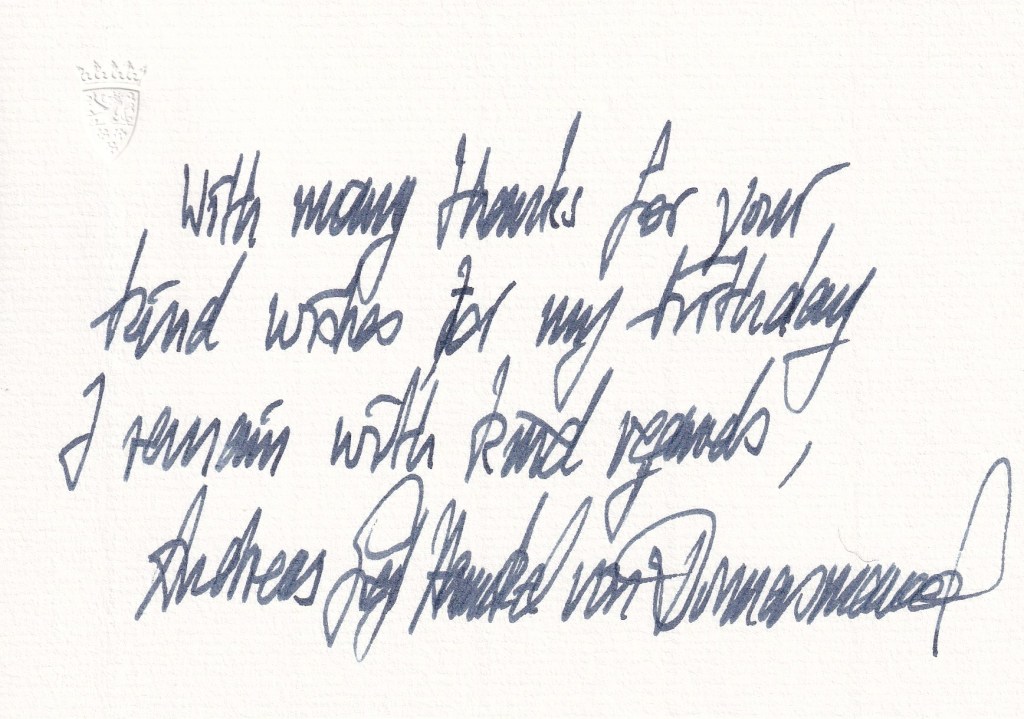 with many thanks for your
kind wishes for my birthday
I remain with kind regards,
Andreas Henckel von Donnersmarck